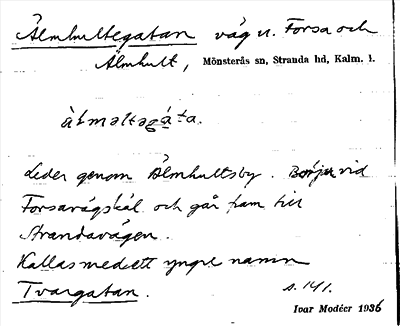 Älmhultegatan väg u. Forsa och
Älmhult, Mönsterås sn, Stranda hd, Kalm. l.
Leder genom Älmhultsby. Börjar vid
Forsavägskäl och går fram till
Strandavägen.
Kallas med ett yngre namn
Tvärgatan. s. 141.
Ivar Modéer 1936